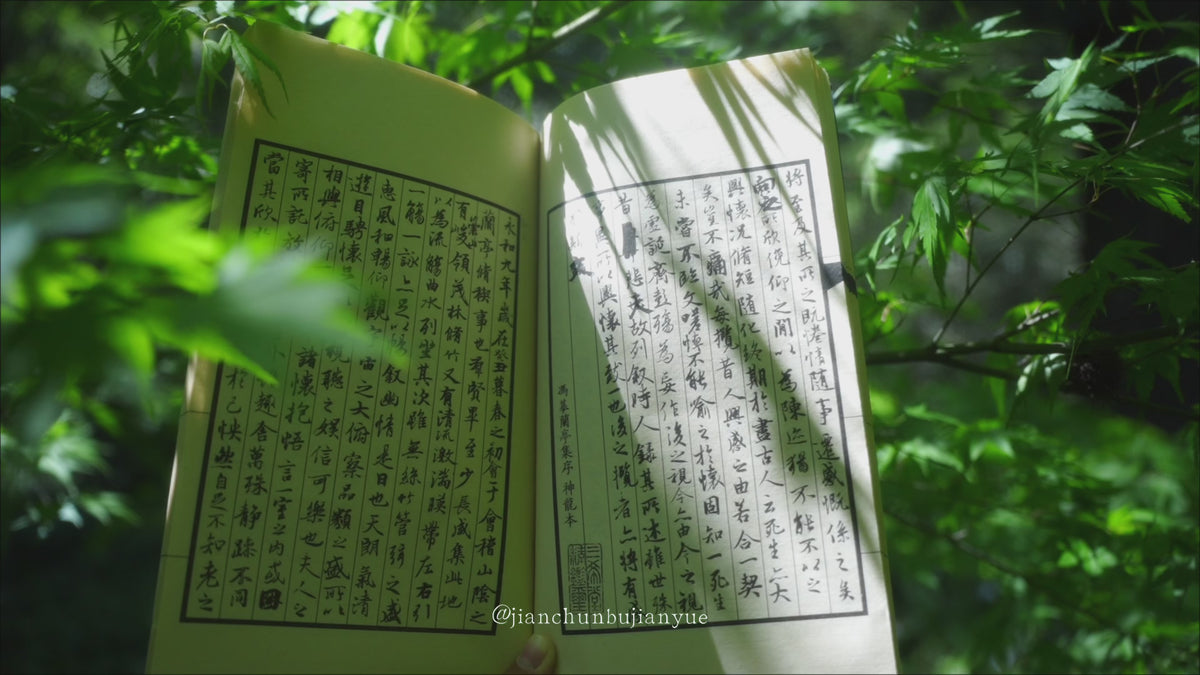 永和九年歲在癸丑暮春之初會于會稽山陰之
蘭亭脩稧事也羣賢畢至少長咸集此地
有崇山峻領茂林脩竹又有清流激湍暎帶左右引
以為流觴曲水列坐其次雖無絲竹管弦之盛
一觴一詠亦足以暢叙幽情是日也天朗氣清
惠風和暢仰觀宇宙之大俯察品類之盛所以
遊目騁懷視聽之娛信可樂也夫人之
相與俯仰諸懷抱悟言一室之內或因
寄所託放趣舍萬殊静躁不同
當其欣於己怏然自足不知老之
將至及其所之既倦情隨事遷感慨係之矣
向之所欣俛仰之閒以為陳迹猶不能不以之
興懷況脩短隨化終期於盡古人云死生亦大
矣豈不痛哉每攬昔人興感之由若合一契
未嘗不臨文嗟悼不能喻之於懷固知一死生
為虛誕齊彭殤為妄作後之視今亦由今之視
昔悲夫故列叙時人錄其所述雖世殊
事異所以興懷其致一也後之攬者亦將有
於斯文
馮摹蘭亭集序 神龍本
@jianchunbujianyue